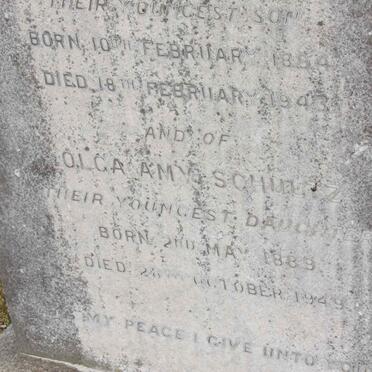 THEIR YOUNGEST SON
BORN 10TH FEBRUARY 1884
DIED 18TH FEBRUARY
AND OF
OLGA AMY SCHULTZ
THEIR YOUNGEST DAUGHTER
BORN 2ND MAY 1889
DIED OCTOBER 1949
MY PEACE I GIVE UNTO YOU